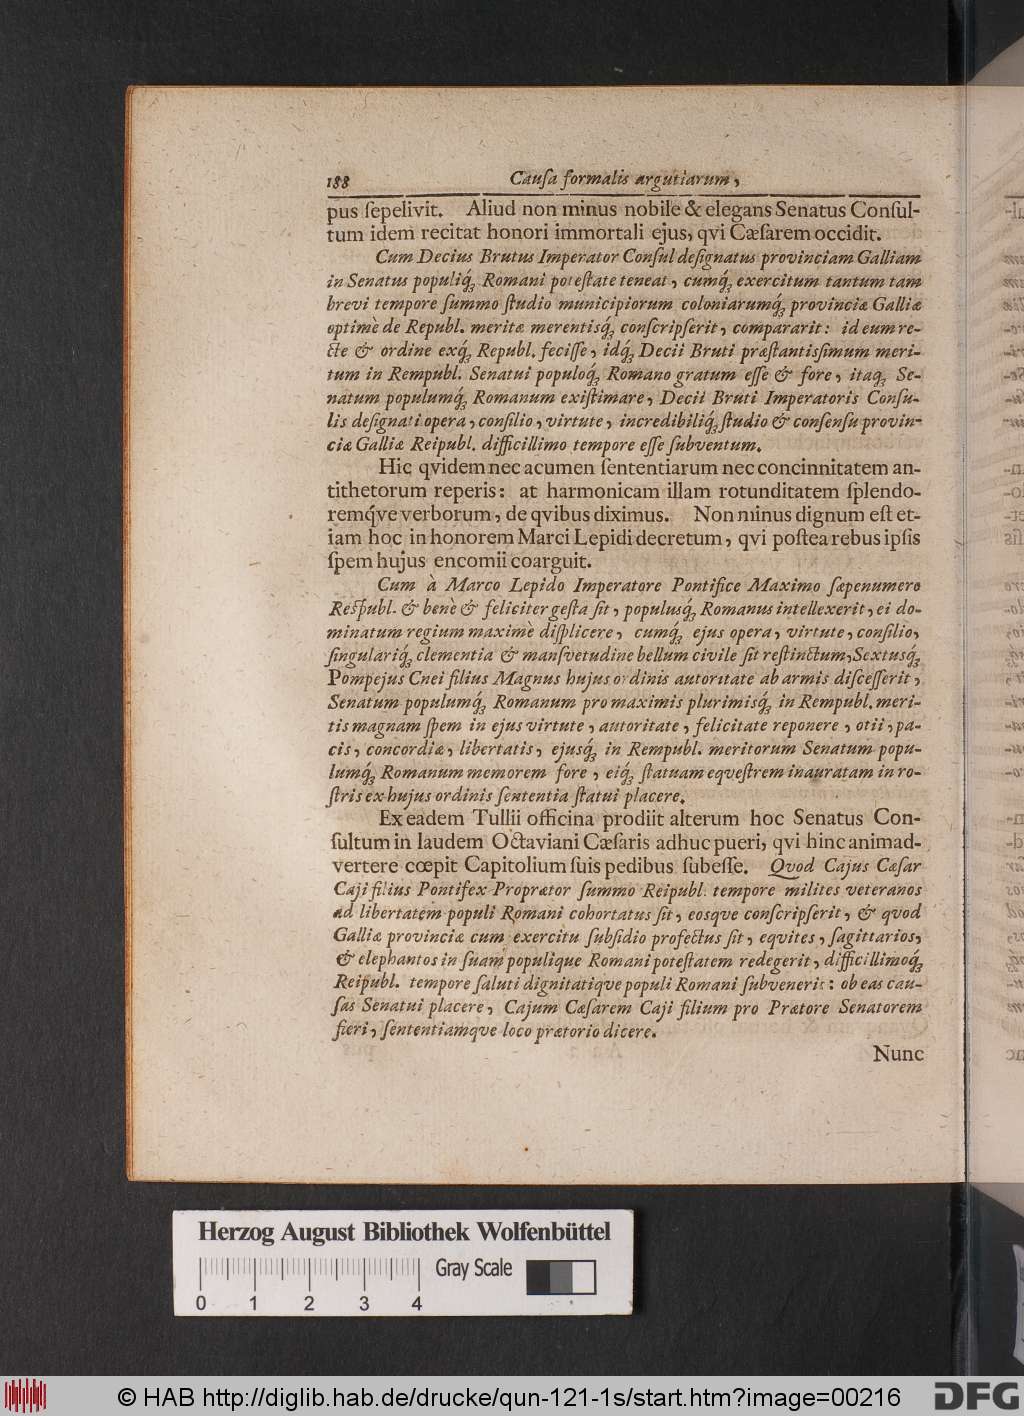 188 Cauſa formalis argutiarum,
pus ſepelivit. Aliud non minus nobile & elegans Senatus Conſul-
tum idem recitat honori immortali ejus, qvi Cæſarem occidit.
Cum Decius Brutus Imperator Conſul deſignatus provinciam Galliam
in Senatus populiq́ꝫ Romani poteſtate teneat, cumq́ꝫ exercitum tantum tam
brevi tempore ſummo ſtudio municipiorum coloniarumq́ꝫ provinciæ Galliæ
optimè de Republ. meritæ merentisq́ꝫ conſcripſerit, compararit: id eum re-
cte & ordine exq́ꝫ Republ. feciſſe, idq́ꝫ Decii Bruti præſtantiſsimum meri-
tum in Rempubl. Senatui populoq́ꝫ Romano gratum eſſe & fore, itaqꝫ Se-
natum populumq́ꝫ Romanum exiſtimare, Decii Bruti Imperatoris Conſu-
lis deſignati opera, conſilio, virtute, incredibiliq́ꝫ ſtudio & conſenſu provin-
ciæ Galliæ Reipubl. difficillimo tempore eſſe ſubventum.
Hic qvidem nec acumen ſententiarum nec concinnitatem an-
tithetorum reperis: at harmonicam illam rotunditatem ſplendo-
remq́ve verborum, de qvibus diximus. Non minus dignum eſt et-
iam hoc in honorem Marci Lepidi decretum, qvi poſtea rebus ipſis
ſpem hujus encomii coarguit.
Cum à Marco Lepido Imperatore Pontifice Maximo ſæpenumero
Reſpubl. & benè & feliciter geſta ſit, populusq́ꝫ Romanus intellexerit, ei do-
minatum regium maximè diſplicere, cumq́ꝫ ejus opera, virtute, conſilio,
ſingulariq́ꝫ clementia & manſvetudine bellum civile ſit reſtinctum, Sextusq́ꝫ
Pompejus Cnei filius Magnus hujus ordinis autoritate ab armis diſceſſerit,
Senatum populumq́ꝫ Romanum pro maximis plurimisq́ꝫ in Rempubl. meri-
tis magnam ſpem in ejus virtute, autoritate, felicitate reponere, otii, pa-
cis, concordiæ, libertatis, ejusq́ꝫ in Rempubl. meritorum Senatum popu-
lumq́ꝫ Romanum memorem fore, eiq́ꝫ ſtatuam eqveſtrem inauratam in ro-
ſtris ex hujus ordinis ſententia ſtatui placere.
Ex eadem Tullii officina prodiit alterum hoc Senatus Con-
ſultum in laudem Octaviani Cæſaris adhuc pueri, qvi hinc animad-
vertere cœpit Capitolium ſuis pedibus ſubeſſe. Qvod Cajus Cæſar
Caji filius Pontifex Proprætor ſummo Reipubl. tempore milites veteranos
ad libertatem populi Romani cohortatus ſit, eosque conſcripſerit, & qvod
Galliæ provinciæ cum exercitu ſubſidio profectus ſit, eqvites, ſagittarios,
& elephantos in ſuam populique Romani poteſtatem redegerit, difficillimoq́ꝫ
Reipubl. tempore ſaluti dignitatiqve populi Romani ſubvenerit: ob eas cau-
ſas Senatui placere, Cajum Cæſarem Caji filium pro Prætore Senatorem
fieri, ſententiamqve loco prætorio dicere.
Nunc
Herzog August Bibliothek Wolfenbüttel
Gray Scale
0 1 2 3 4
© HAB http://diglib.hab.de/drucke/qun-121-1s/start.htm?image=00216
DFG